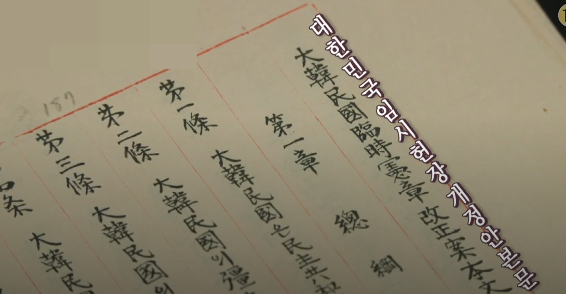 대한민국임시헌장개정안본문
大韓民國臨時憲章改正案本文
第一章 總綱
苐一條 大韓民國 民主共和
苐二條 大韓民國의疆
苐三條 大韓民國의
四条 大韓民
187